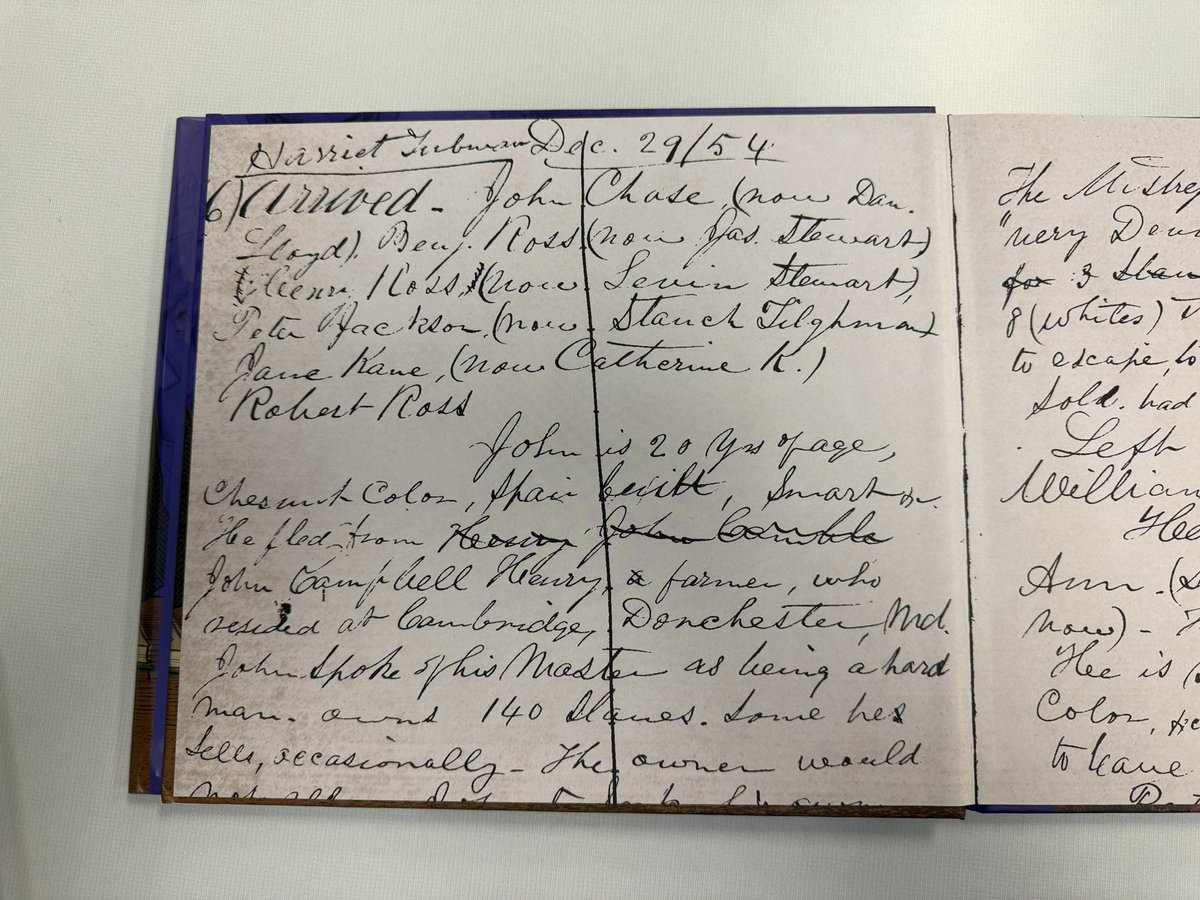 Harriet Tubman Dec. 29/54
6) Arrived - John Chase, (now Dan.
Lloyd). Benj. Ross (now Jas. Stewart)
Henry Ross, (now Levin Stewart),
Peter Jackson, (now Stanch Tilghman)
Jane Kane, (now Catherine K.)
Robert Ross
John is 20 yrs of age,
Chesnut Color, Spair built, Smart &c.
He fled from Henry John Camble
John Campbell Henry, a farmer, who
resided at Cambridge, Dorchester, Md.
John spoke of his Master as being a hard
man. owns 140 Slaves. Some he
sells, occasionally - The owner would
The Mistre
"very Dev
for 3
8 (whites)
to escape, to
Sold. had
Left
William
He
Ann. (
now) -
He is
Color,
to leave